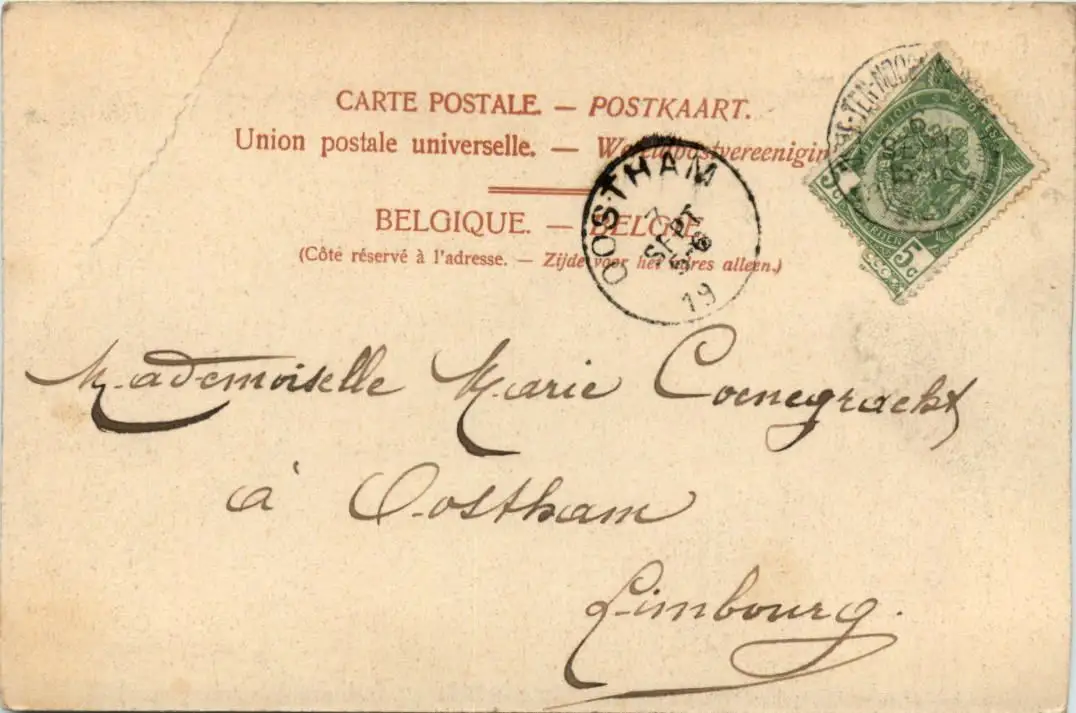 CARTE POSTALE. — POSTKAART.
Union postale universelle. — Wereldpostvereeniging
BELGIQUE. — BELGIE.
(Côté réservé à l'adresse. — Zijde voor het adres alleen.)
OOSTHAM
7
SEPT
19
5c
5c
Mademoiselle Marie Coenegracht
à Oostham
Limbourg.